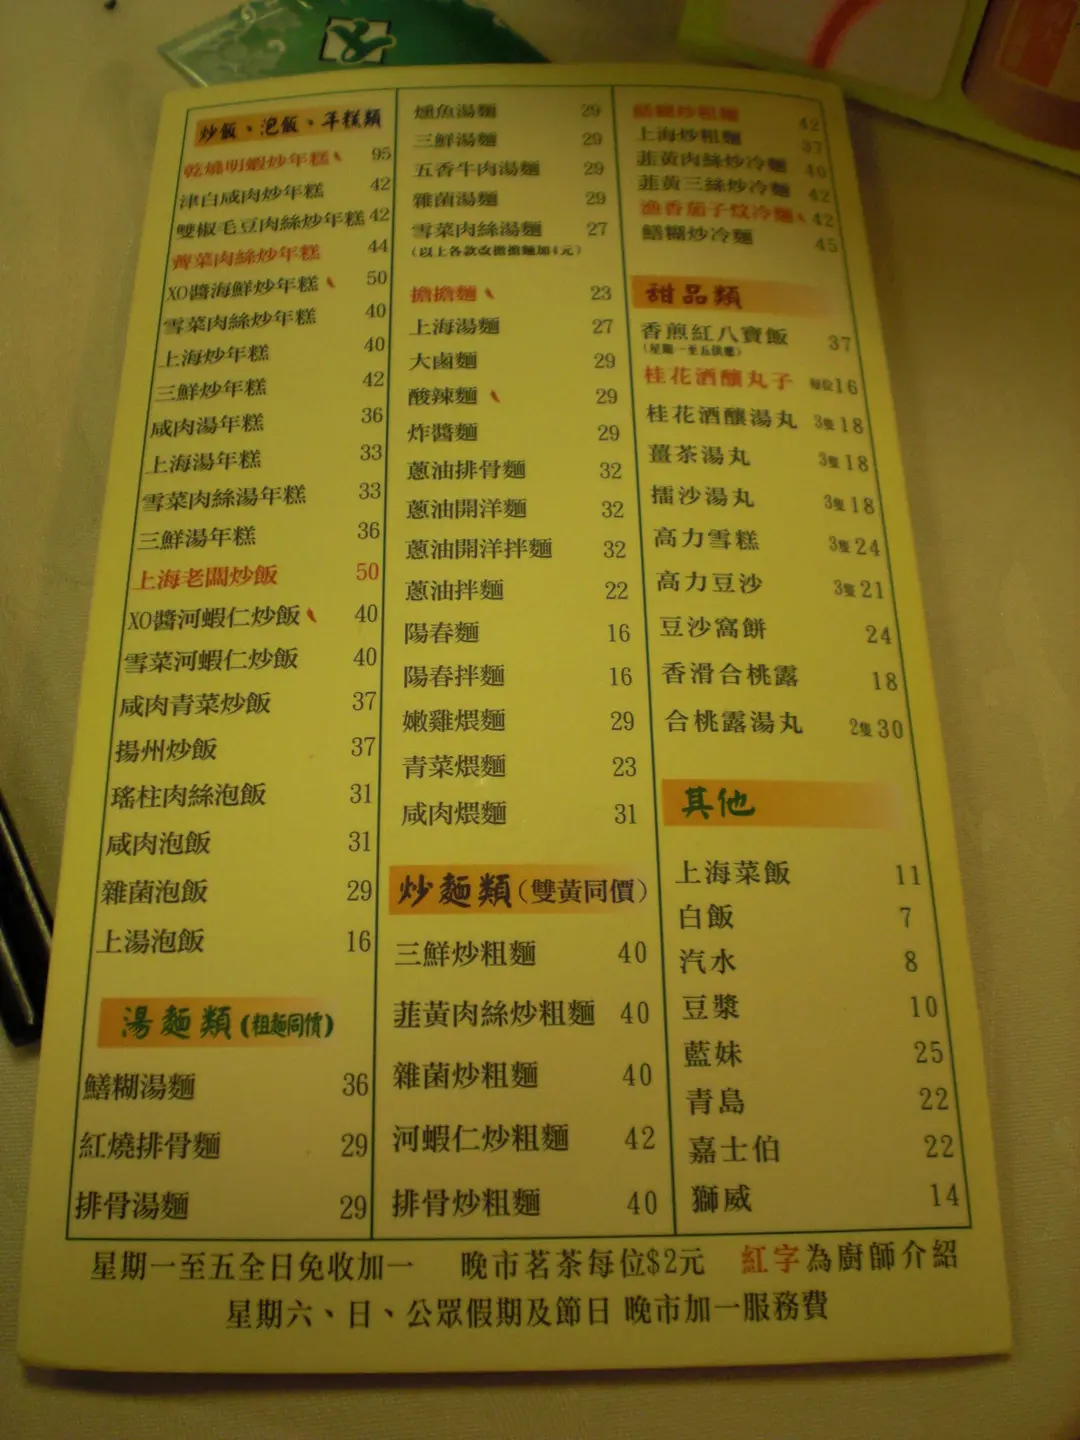 炒飯、泡飯、年糕類
乾燒明蝦炒年糕 95
津白咸肉炒年糕 42
雙椒毛豆肉絲炒年糕 42
薺菜肉絲炒年糕 44
XO醬海鮮炒年糕 50
雪菜肉絲炒年糕 40
上海炒年糕 40
三鮮炒年糕 42
咸肉湯年糕 36
上海湯年糕 33
雪菜肉絲湯年糕 33
三鮮湯年糕 36
上海老闆炒飯 50
XO醬河蝦仁炒飯 40
雪菜河蝦仁炒飯 40
咸肉青菜炒飯 37
揚州炒飯 37
瑤柱肉絲泡飯 31
咸肉泡飯 31
雜菌泡飯 29
上湯泡飯 16
湯麵類(粗麵同價)
鱔糊湯麵 36
紅燒排骨麵 29
排骨湯麵 29
燻魚湯麵 29
三鮮湯麵 29
五香牛肉湯麵 29
雜菌湯麵 29
雪菜肉絲湯麵 27
(以上各款改擔擔麵加4元)
擔擔麵 23
上海湯麵 27
大鹵麵 29
酸辣麵 29
炸醬麵 29
蔥油排骨麵 32
蔥油開洋麵 32
蔥油開洋拌麵 32
蔥油拌麵 22
陽春麵 16
陽春拌麵 16
嫩雞煨麵 29
青菜煨麵 23
咸肉煨麵 31
炒麵類(雙黃同價)
三鮮炒粗麵 40
韮黃肉絲炒粗麵 40
雜菌炒粗麵 40
河蝦仁炒粗麵 42
排骨炒粗麵 40
鱔糊炒粗麵 42
上海炒粗麵 37
韮黃肉絲炒冷麵 40
韮黃三絲炒冷麵 42
漁香茄子炆冷麵 42
鱔糊炒冷麵 45
甜品類
香煎紅八寶飯 37
(星期一至五供應)
桂花酒釀丸子 每位16
桂花酒釀湯丸 3隻18
薑茶湯丸 3隻18
擂沙湯丸 3隻18
高力雪糕 3隻24
高力豆沙 3隻21
豆沙窩餅 24
香滑合桃露 18
合桃露湯丸 2隻30
其他
上海菜飯 11
白飯 7
汽水 8
豆漿 10
藍妹 25
青島 22
嘉士伯 22
獅威 14
星期一至五全日免收加一 晚市茗茶每位$2元 紅字為廚師介紹
星期六、日、公眾假期及節日 晚市加一服務費